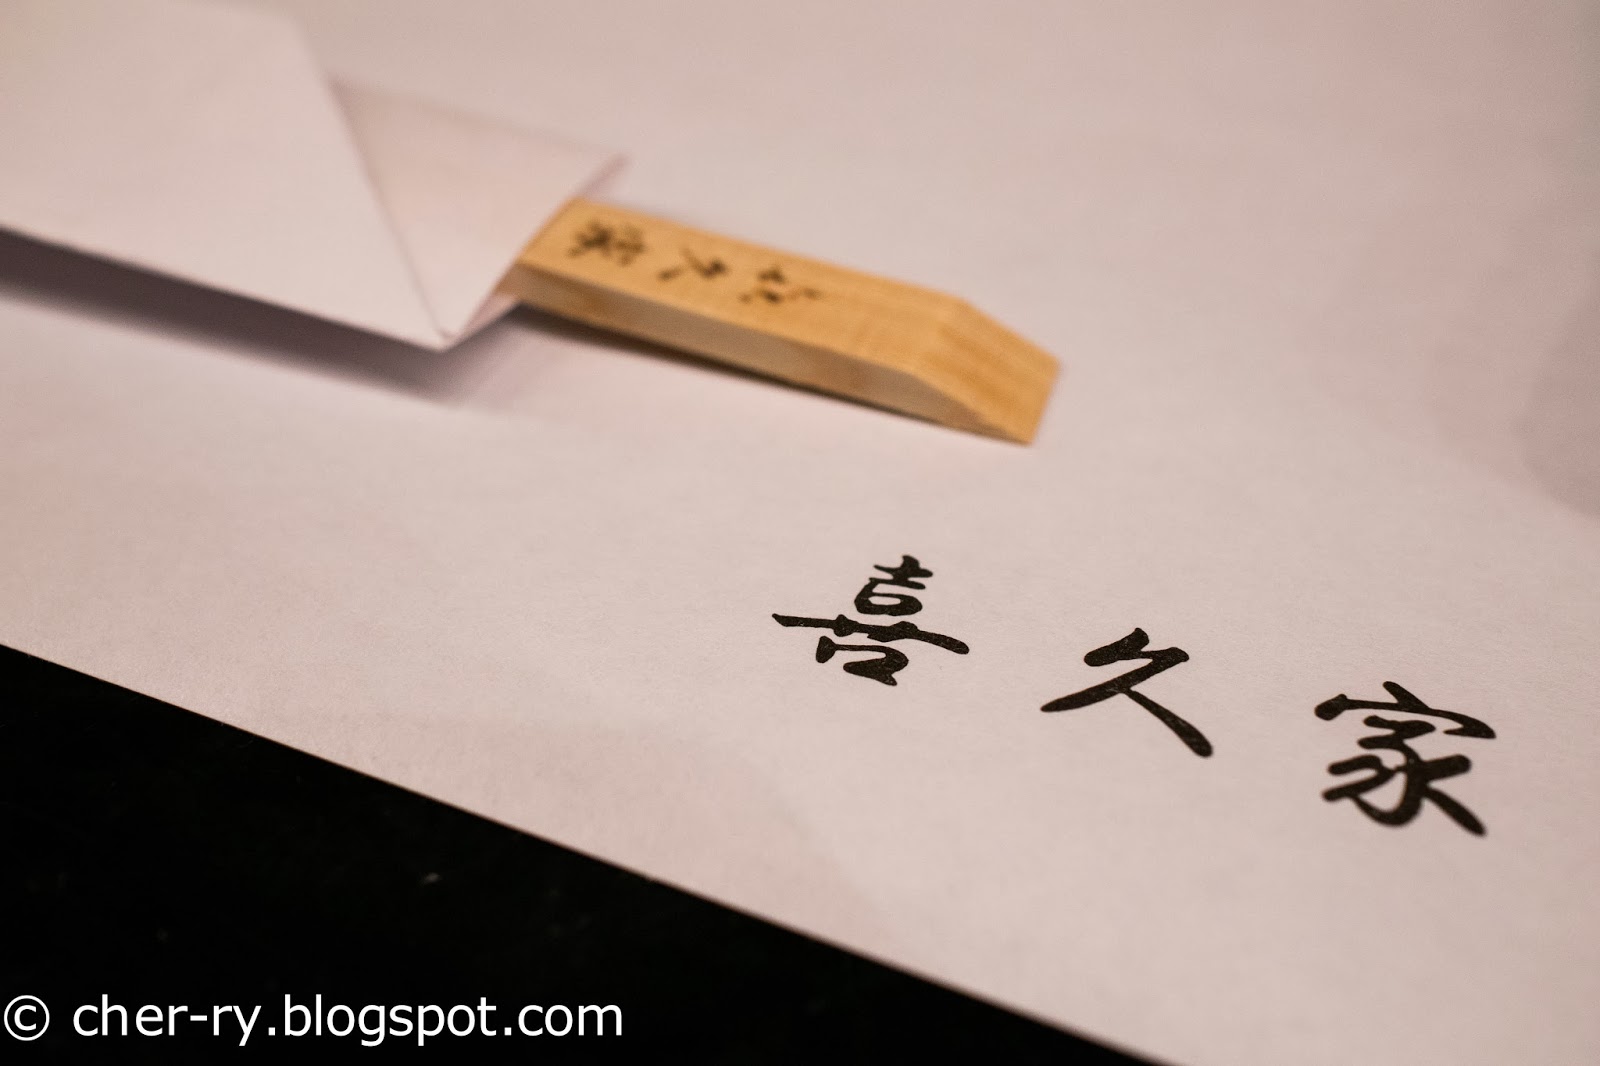 喜久家
喜久家
© cher-ry.blogspot.com